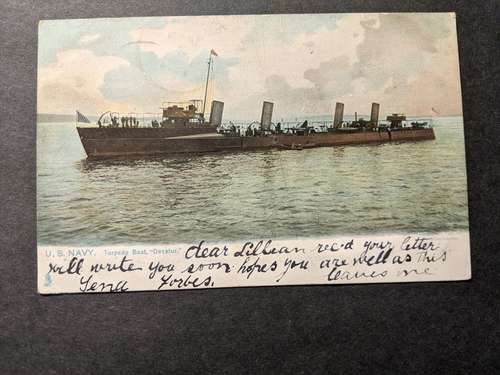 U. S. NAVY. Torpedo Boat, "Decatur."
dear Lillian rec'd your letter
will write you soon hopes you are well as this
leaves me
Forbes.